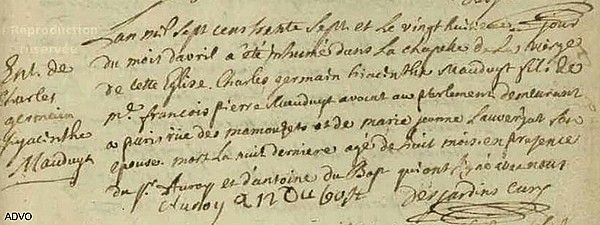 Reproduction réservée
Ent. de
Charles
germain
hyacinthe
Mauduyt
Lan mil sept cens trente sept et le vingt huitieme jour
du mois davril a été inhumé dans la chapelle de la vierge
de cette Eglise, Charles germain hiacinthe Mauduyt fils de
me. françois pierre Mauduyt avocat au parlement demeurant
a paris rue des mamouzets et de marie jeanne Lauverjat son
epouse mort la nuit derniere agé de huit mois en presence
du sr. Auroy et d'antoine du Bost qui ont signé avec nous
Auroy an Du bost
Desjardins Curé
ADVO